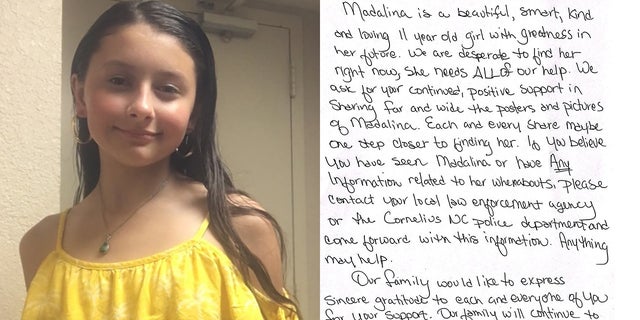 Madalina is a beautiful, smart, kind
and loving 11 year old girl with greatness in
her future. We are desperate to find her
right now, She needs ALL of our help. We
ask for your continued, positive support in
Sharing far and wide the posters and pictures
of Madalina. Each and every Share maybe
one step closer to finding her. If you believe
you have seen Madalina or have Any
Information related to her whereabouts, please
contact your local law enforcement agency
or the Cornelius NC police department and
come forward with this information. Anything
may help.
Our family would like to express
sincere gratitude to each and everyone of you
for your support. Our family will continue to